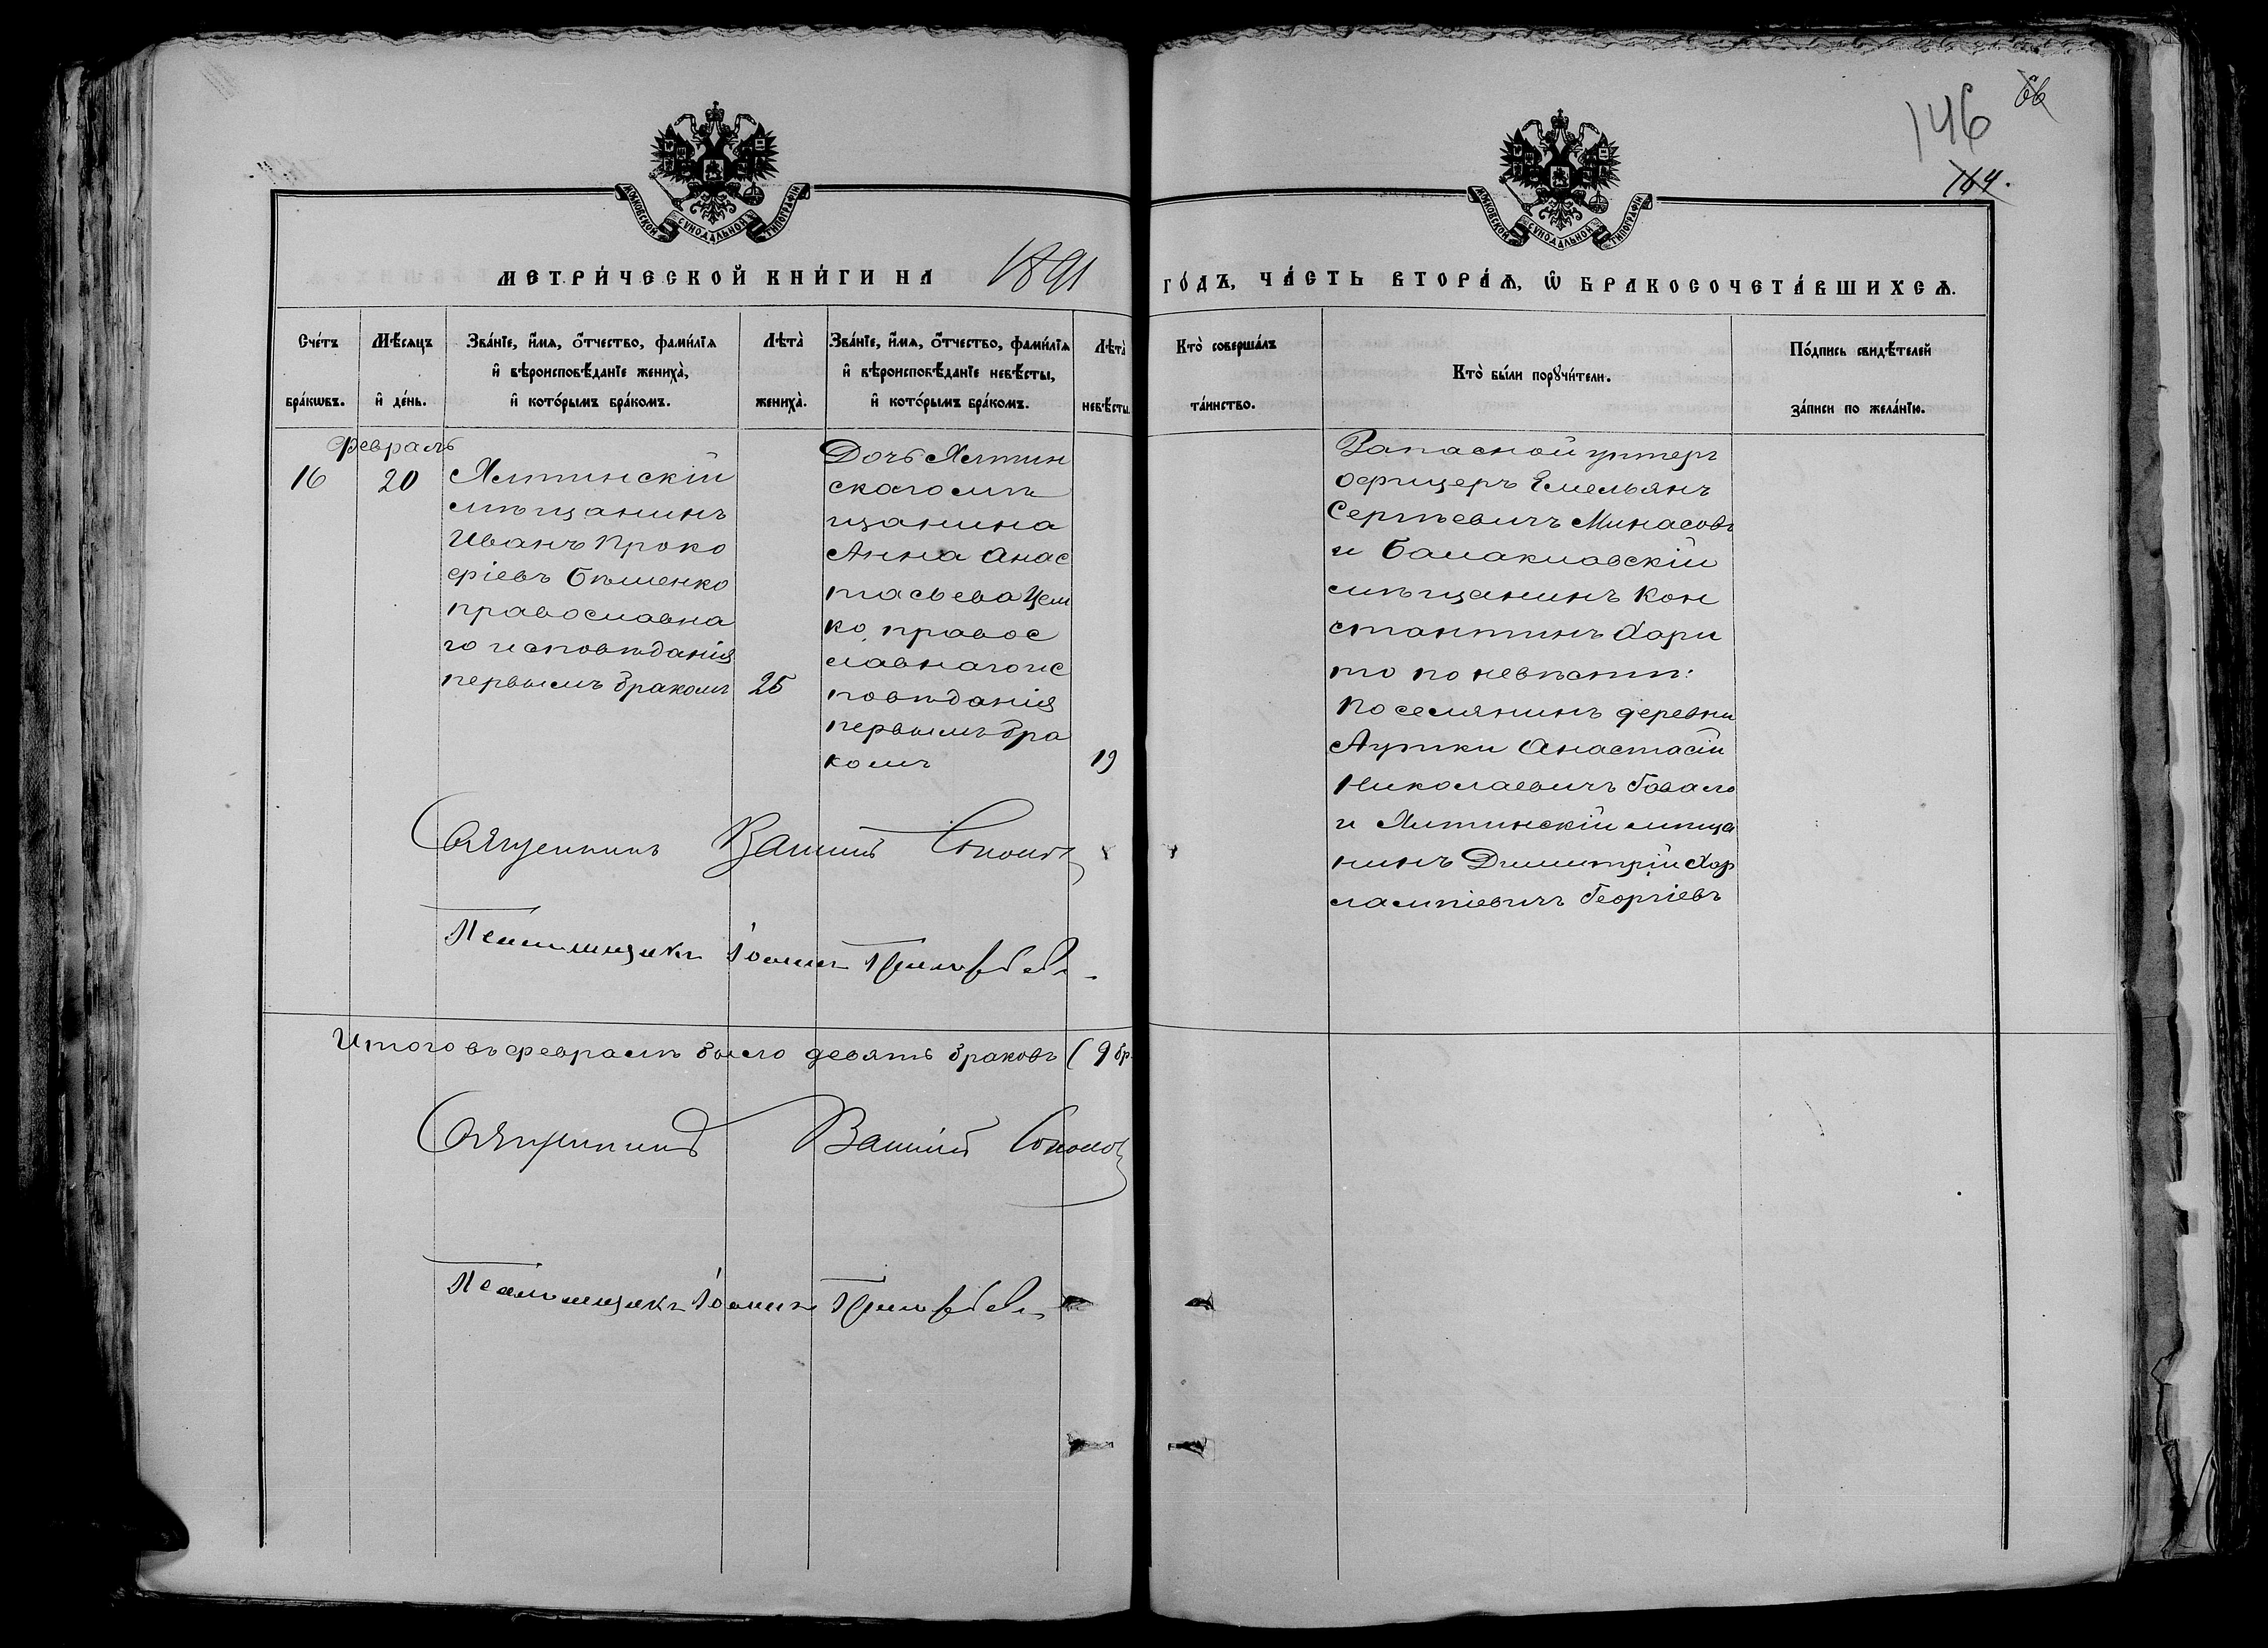 146
164.
МОСКОВСКОЙ СУНОДАЛЬНОЙ ТИПОГРАФІИ
МОСКОВСКОЙ СУНОДАЛЬНОЙ ТИПОГРАФІИ
МЕТРИ́ЧЕСКОЙ КНИ́ГИ НА 1891 ГО́ДЪ, ЧА́СТЬ ВТОРА́Ѧ, Ѽ БРАКОСОЧЕТА́ВШИХСѦ.
Сче́тъ бра́кѡвъ.
Мѣ́сяцъ и҆ де́нь.
Зва́нїе, и҆́мѧ, ѻ҆́тчество, фами́лїѧ
и҆ вѣроисповѣ́данїе жениха̀,
и҆ кото́рымъ бра́комъ.
Лѣта̀ жениха̀.
Зва́нїе, и҆́мѧ, ѻ҆́тчество, фами́лїѧ
и҆ вѣроисповѣ́данїе невѣ́сты,
и҆ кото́рымъ бра́комъ.
Лѣта̀ невѣ́сты.
Кто̀ соверша́лъ та́инство.
Кто̀ бы́ли порꙋчи́тели.
По́дпись свидѣ́телей за́писи по жела́нїю.
Февраль
16
20
Ялтинскій
мѣщанинъ
Иванъ Проко
фіевъ Бѣленко
православна
го исповѣданія
первымъ бракомъ
25
Дочь Ялтин
скаго мѣ
щанина
Анна Анас
тасьева Цем
ко, правос
лавнаго ис
повѣданія
первымъ бра
комъ
19
Запасной унтеръ
офицеръ Емельянъ
Сергѣевичъ Минасовъ
и Балаклавскій
мѣщанинъ Кон
стантинъ Хари
то по невѣстѣ:
Поселянинъ деревни
Аутки Анастасій
Николаевичъ Говало
и Ялтинскій мѣща
нинъ Димитрій Хар
лампіевичъ Георгіевъ
Священникъ Василій Соколовъ
Псаломщикъ Іоаннъ
Итого въ февралѣ было девять браковъ (9 бр
Священникъ Василій Соколовъ
Псаломщикъ Іоаннъ